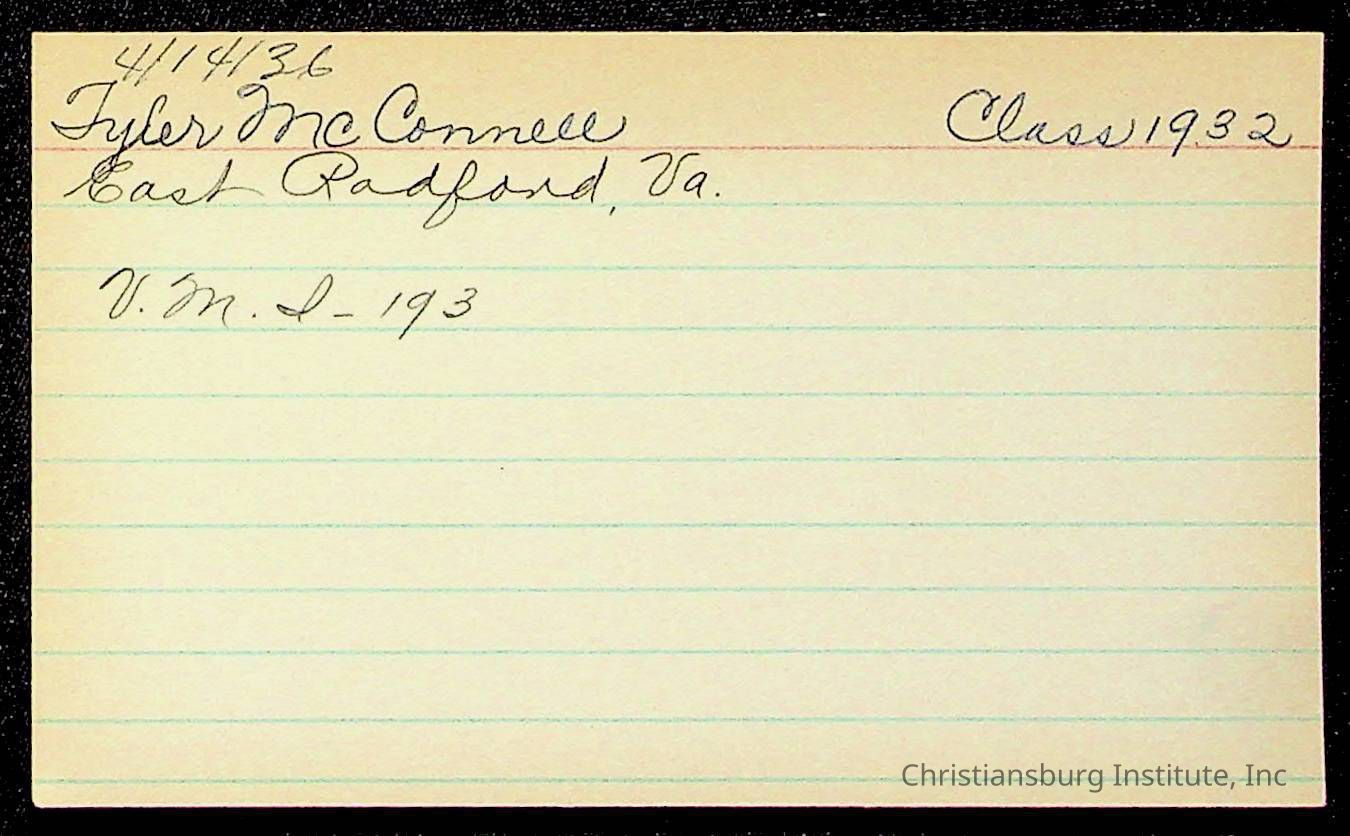 4/14/36
Tyler McConnell Class 1932
East Radford, Va.
V. M. I - 193
Christiansburg Institute, Inc